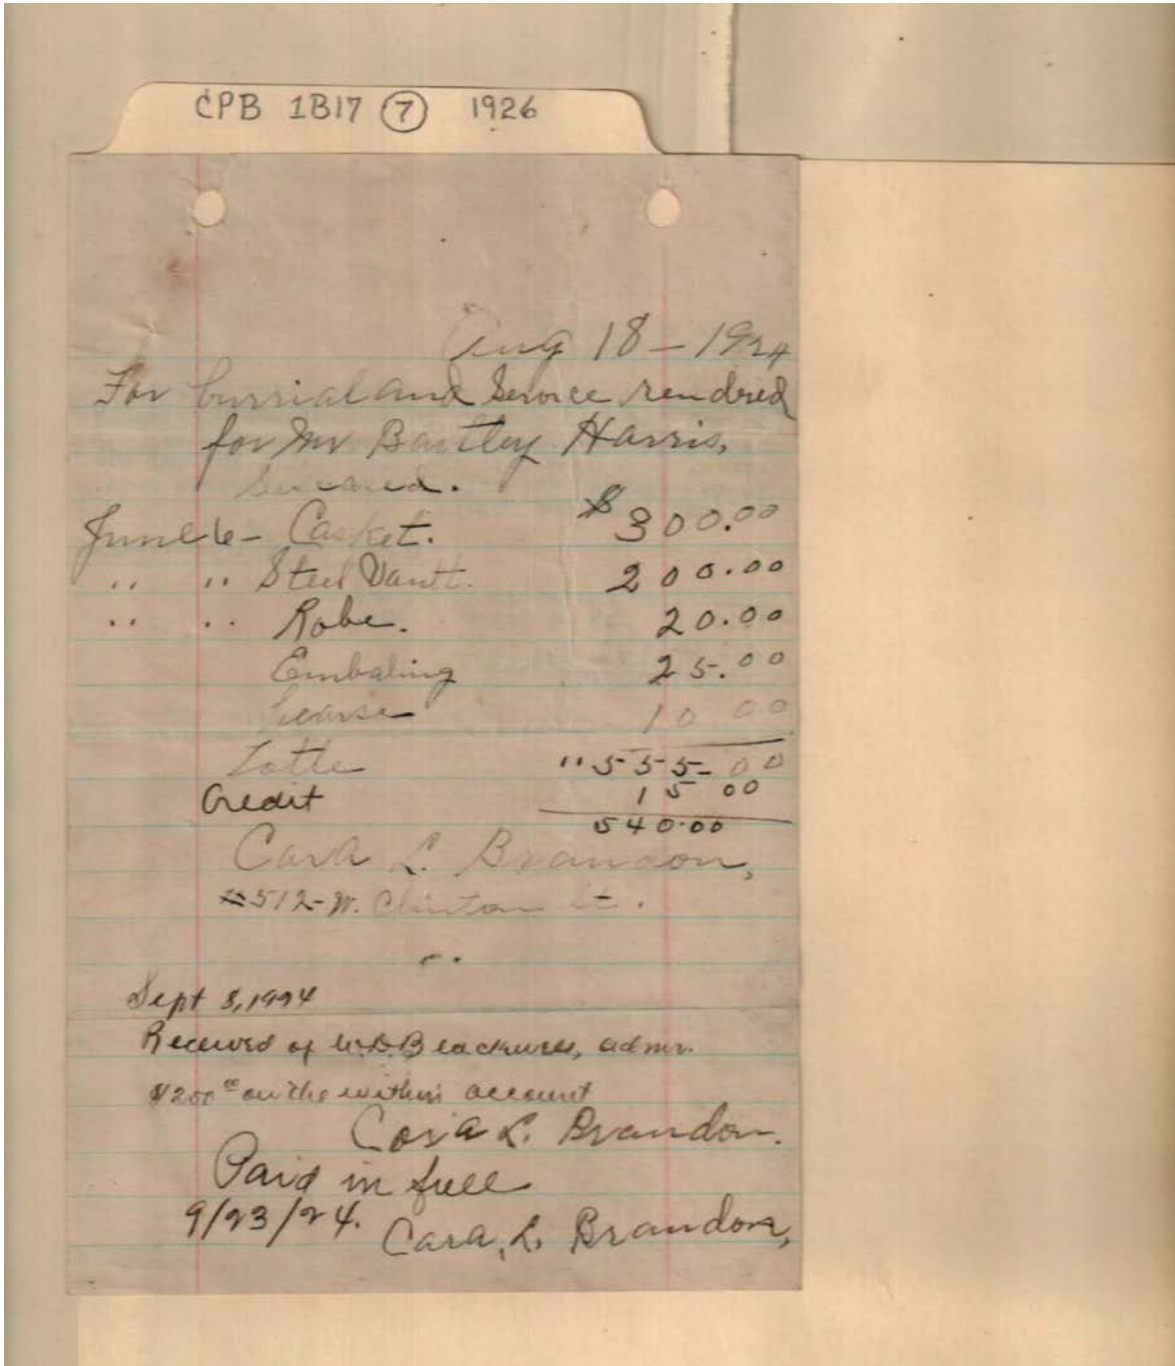 CPB 1B17 7 1926
Aug 18-1924
For burrial and Service rendred
for Mr Bartley Harris,
deceased.
June 6- Casket. $300.00
" " Steel Vault. 200.00
" " Robe. 20.00
Embaling 25.00
hearse 10 00
Totle " 555-00
Credit 15 00
540.00
Cora L. Brandon,
#512-W. Clinton St.
Sept 8, 1924
Received of admr.
$200 00 on the within account
Cora L. Brandon.
Paid in full
9/23/24. Cora, L. Brandon,